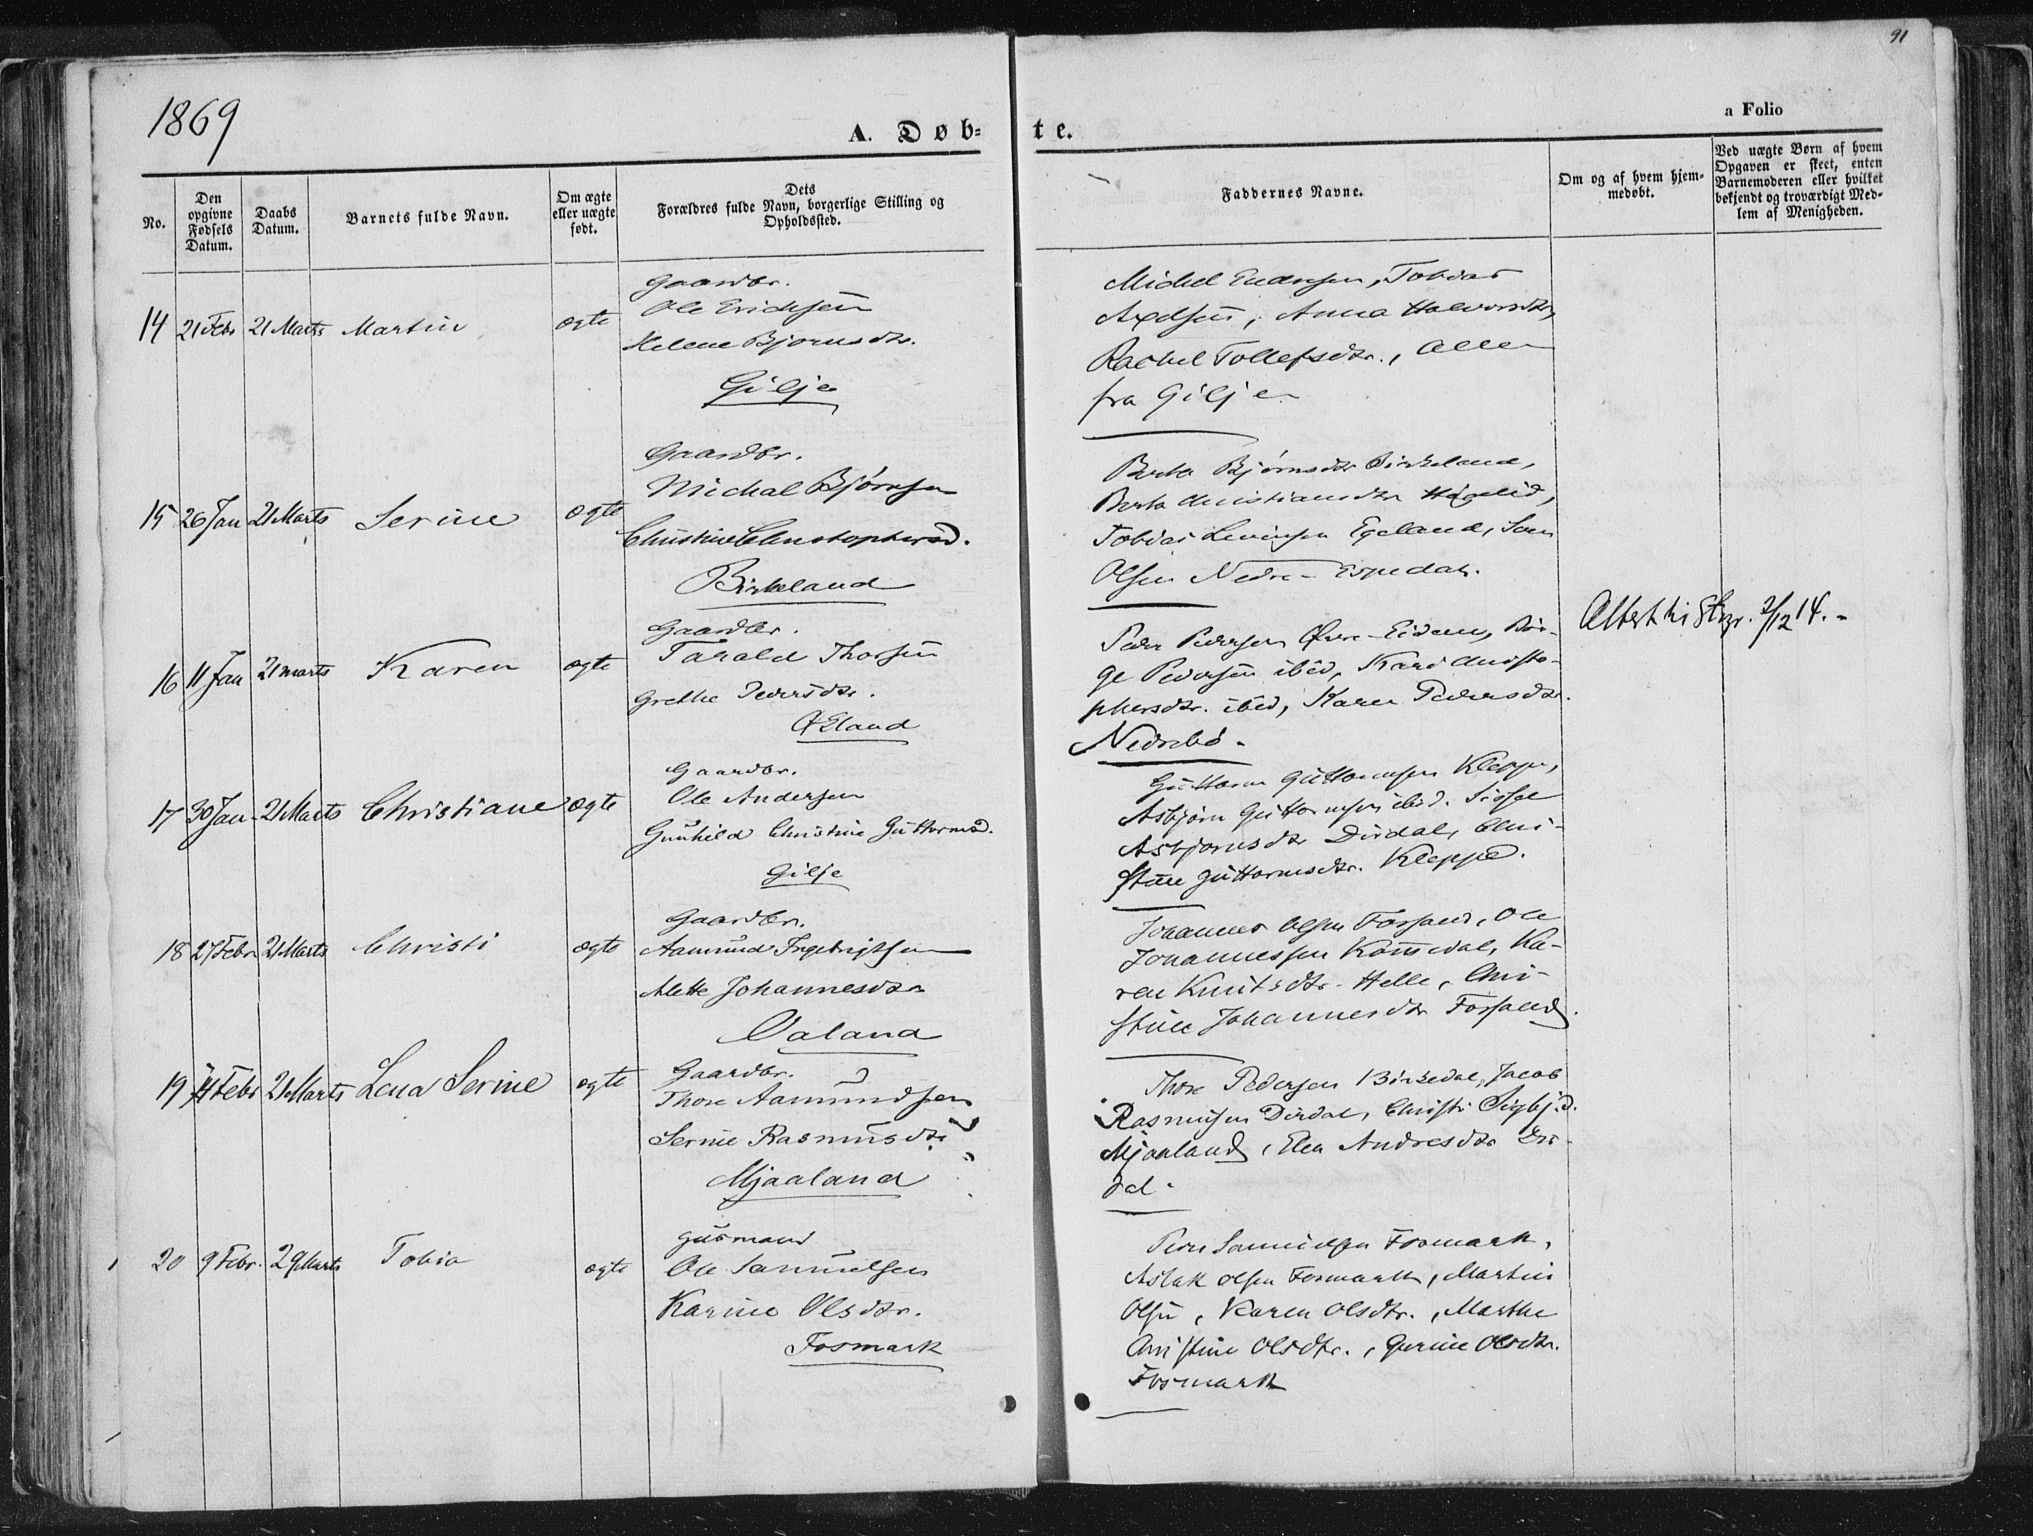 1869
91
A. Døb-
te.
a Folio
No.
Den
opgivne
Fødsels
Datum.
Daabs
Datum.
Barnets fulde Navn.
Om ægte
eller uægte
født.
Dets
Forældres fulde Navn, borgerlige Stilling og
Opholdssted.
Faddernes Navne.
Om og af hvem hjem-
medøbt.
Ved uægte Børn af hvem
Opgaven er skeet, enten
Barnemoderen eller hvilket
bekjendt og troværdigt Med-
lem af Menigheden.
14 21 Febr 21 Marts Martin ægte
Gaardbr.
Ole Ericksen
Helene Bjornsdtr.
Gilje
Michel Endresen, Tobias
Axelsen, Anna Halvorsdtr,
Rachel Tollefsdtr., Alle
fra Gilje
15 26 Jan 21 Marts Serine ægte
Gaardbr.
Michal Bjørnsen
Christine Christophersd.
Birkeland
Berta Bjørnsdtr Birkeland,
Berta Christiansdtr
Tobias Levinsen Egeland, Sven
Olsen Nedre-Espedal.
16 11 Jan 21 marts Karen ægte
Gaardbr.
Tarald Thorsen
Grethe Pedersdtr.
Øeland
Peder Pedersen Øvre-Eidem, Bør-
ge Pedersen ibid, Kari Christo-
phersdtr. ibid, Karen Pedersdtr.
Nedrebø.
Altest til 2/12 14.-
17 30 Jan 21 Marts Christiane ægte
Gaardbr.
Ole Andersen
Gunhild Christine Guttormsd.
Gilje
Guttorm Guttormsen Kleppe,
Asbjørn Guttormsen ibid. Sissel
Asbjornsdtr Dirdal, Chri-
stine Guttormsdtr. Kleppe.
18 27 Febr 21 Marts Christi ægte
Gaardbr.
Aamund Ingebrigtsen
Alette Johannesdtr
Valand
Johannes Olsen Forsand, Ole
Johannessen Komedal, Ka-
ren Knutsdtr. Helle, Chri-
stine Johannesdtr Forsand.
19 14 Febr 21 Marts Lena Serine ægte
Gaardbr.
Thore Aamundsen
Serine Rasmusdtr
Mjaaland
Thore Pedersen Birkedal, Jacob
Rasmusen Dirdal, Christi Sigbj.d.
Mjaaland, Elen Andresdtr Dir-
dal.
20 9 Febr. 29 Marts Tobia ægte
Gusmand
Ole Samuelsen
Karine Olsdtr.
Fosmark
Peder Samuelsen Fosmark,
Aslak Olsen Fosmark, Martin
Olsen, Karen Olsdtr., Marthe
Christine Olsdtr., Gurine Olsdtr.
Fosmark